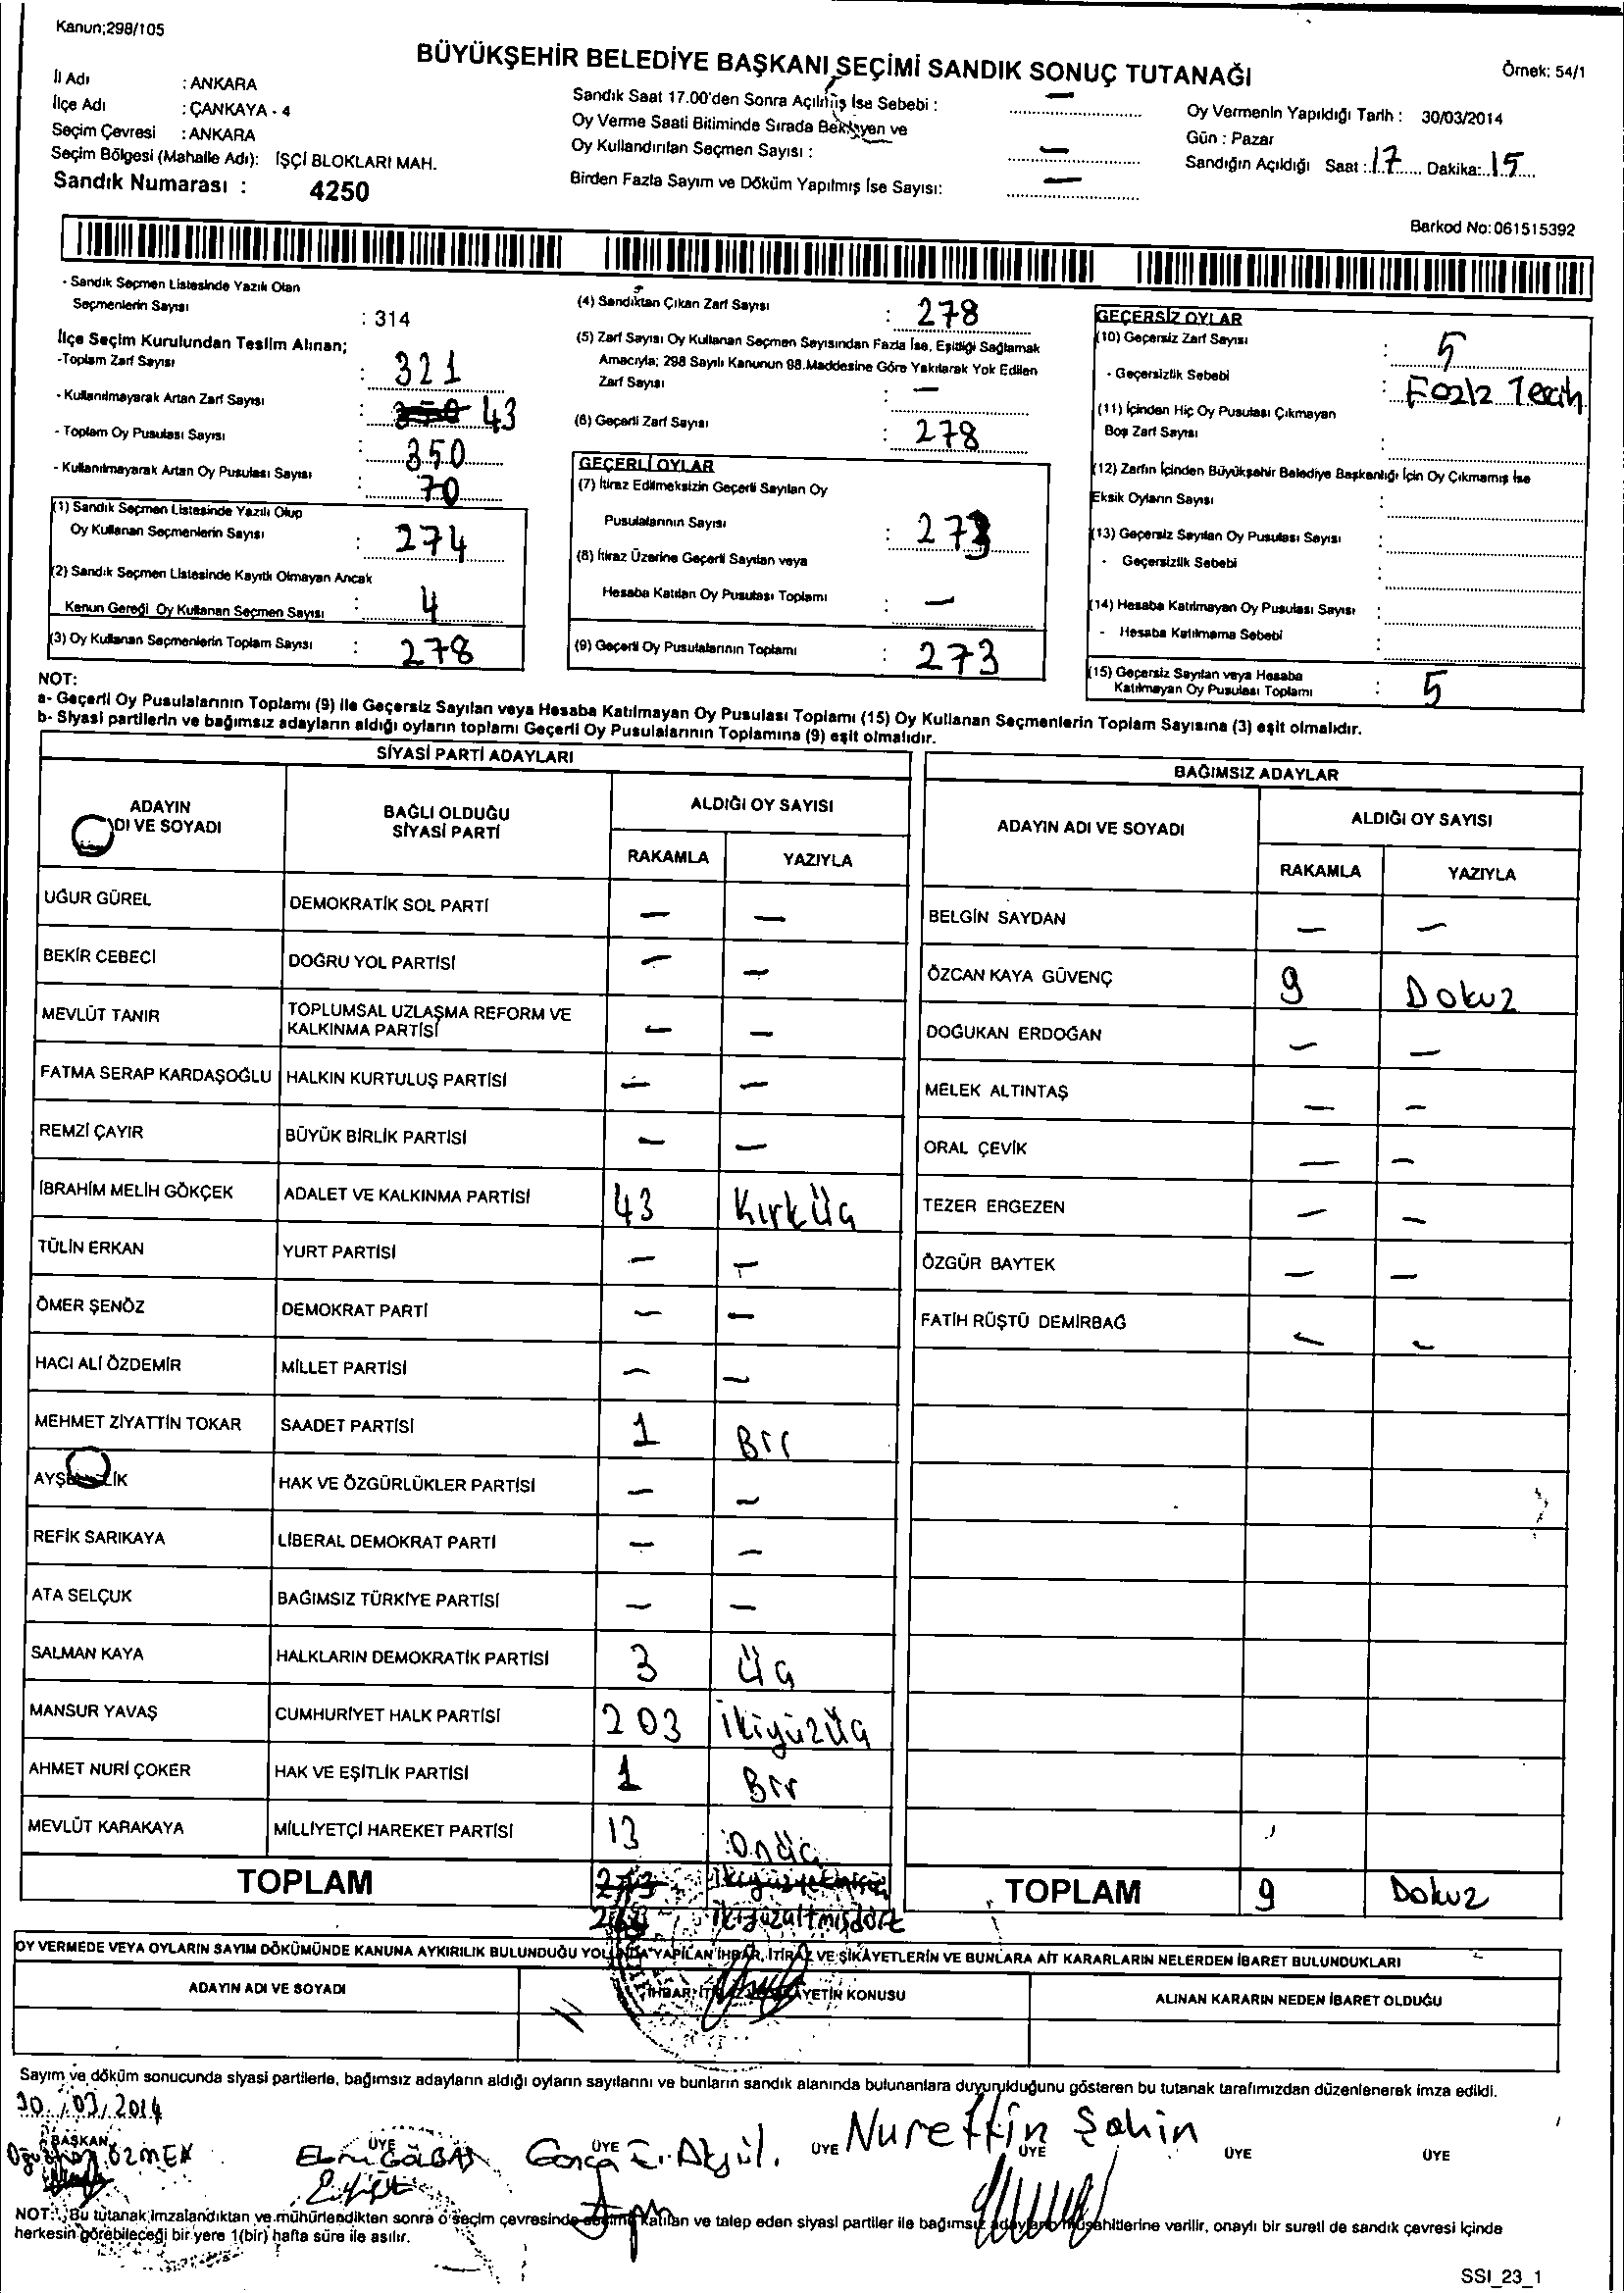 Kanun;298/105
BÜYÜKŞEHİR BELEDİYE BAŞKANI SEÇİMİ SANDIK SONUÇ TUTANAĞI
Örnek: 54/1
İl Adı : ANKARA
İlçe Adı : ÇANKAYA - 4
Seçim Çevresi : ANKARA
Seçim Bölgesi (Mahalle Adı): İŞÇİ BLOKLARI MAH.
Sandık Numarası : 4250
Sandık Saat 17.00'den Sonra Açılmış İse Sebebi : —
Oy Verme Saati Bitiminde Sırada Bekleyen ve
Oy Kullandırılan Seçmen Sayısı : —
Birden Fazla Sayım ve Döküm Yapılmış İse Sayısı: —
Oy Vermenin Yapıldığı Tarih : 30/03/2014
Gün : Pazar
Sandığın Açıldığı Saat : 17 Dakika: 15
Barkod No:061515392
- Sandık Seçmen Listesinde Yazılı Olan
Seçmenlerin Sayısı : 314
İlçe Seçim Kurulundan Teslim Alınan;
-Toplam Zarf Sayısı : 321
- Kullanılmayarak Artan Zarf Sayısı : 43
- Toplam Oy Pusulası Sayısı : 350
- Kullanılmayarak Artan Oy Pusulası Sayısı : 70
(1) Sandık Seçmen Listesinde Yazılı Olup
Oy Kullanan Seçmenlerin Sayısı : 274
(2) Sandık Seçmen Listesinde Kayıtlı Olmayan Ancak
Kanun Gereği Oy Kullanan Seçmen Sayısı : 4
(3) Oy Kullanan Seçmenlerin Toplam Sayısı : 278
(4) Sandıktan Çıkan Zarf Sayısı : 278
(5) Zarf Sayısı Oy Kullanan Seçmen Sayısından Fazla İse, Eşitliği Sağlamak
Amacıyla; 298 Sayılı Kanunun 98.Maddesine Göre Yakılarak Yok Edilen
Zarf Sayısı : —
(6) Geçerli Zarf Sayısı : 278
GEÇERLİ OYLAR
(7) İtiraz Edilmeksizin Geçerli Sayılan Oy
Pusulalarının Sayısı : 273
(8) İtiraz Üzerine Geçerli Sayılan veya
Hesaba Katılan Oy Pusulası Toplamı : —
(9) Geçerli Oy Pusulalarının Toplamı : 273
GEÇERSİZ OYLAR
(10) Geçersiz Zarf Sayısı : 5
- Geçersizlik Sebebi : Fazla Tercih
(11) İçinden Hiç Oy Pusulası Çıkmayan
Boş Zarf Sayısı :
(12) Zarfın İçinden Büyükşehir Belediye Başkanlığı İçin Oy Çıkmamış İse
Eksik Oyların Sayısı :
(13) Geçersiz Sayılan Oy Pusulası Sayısı :
- Geçersizlik Sebebi :
(14) Hesaba Katılmayan Oy Pusulası Sayısı :
- Hesaba Katılmama Sebebi :
(15) Geçersiz Sayılan veya Hesaba
Katılmayan Oy Pusulası Toplamı : 5
NOT:
a- Geçerli Oy Pusulalarının Toplamı (9) ile Geçersiz Sayılan veya Hesaba Katılmayan Oy Pusulası Toplamı (15) Oy Kullanan Seçmenlerin Toplam Sayısına (3) eşit olmalıdır.
b- Siyasi partilerin ve bağımsız adayların aldığı oyların toplamı Geçerli Oy Pusulalarının Toplamına (9) eşit olmalıdır.
SİYASİ PARTİ ADAYLARI
ADAYIN
DI VE SOYADI
BAĞLI OLDUĞU
SİYASİ PARTİ
ALDIĞI OY SAYISI
RAKAMLA YAZIYLA
UĞUR GÜREL DEMOKRATİK SOL PARTİ — —
BEKİR CEBECİ DOĞRU YOL PARTİSİ — —
MEVLÜT TANIR TOPLUMSAL UZLAŞMA REFORM VE
KALKINMA PARTİSİ — —
FATMA SERAP KARDAŞOĞLU HALKIN KURTULUŞ PARTİSİ — —
REMZİ ÇAYIR BÜYÜK BİRLİK PARTİSİ — —
İBRAHİM MELİH GÖKÇEK ADALET VE KALKINMA PARTİSİ 43 Kırküç
TÜLİN ERKAN YURT PARTİSİ — —
ÖMER ŞENÖZ DEMOKRAT PARTİ — —
HACI ALİ ÖZDEMİR MİLLET PARTİSİ — —
MEHMET ZİYATTİN TOKAR SAADET PARTİSİ 1 Bir
HAK VE ÖZGÜRLÜKLER PARTİSİ — —
REFİK SARIKAYA LİBERAL DEMOKRAT PARTİ — —
ATA SELÇUK BAĞIMSIZ TÜRKİYE PARTİSİ — —
SALMAN KAYA HALKLARIN DEMOKRATİK PARTİSİ 3 Üç
MANSUR YAVAŞ CUMHURİYET HALK PARTİSİ 203 İkiyüzüç
AHMET NURİ ÇOKER HAK VE EŞİTLİK PARTİSİ 1 Bir
MEVLÜT KARAKAYA MİLLİYETÇİ HAREKET PARTİSİ 13 Onüç
TOPLAM
ikiyüzaltmışdört
BAĞIMSIZ ADAYLAR
ADAYIN ADI VE SOYADI
ALDIĞI OY SAYISI
RAKAMLA YAZIYLA
BELGİN SAYDAN — —
ÖZCAN KAYA GÜVENÇ 9 Dokuz
DOĞUKAN ERDOĞAN — —
MELEK ALTINTAŞ — —
ORAL ÇEVİK — —
TEZER ERGEZEN — —
ÖZGÜR BAYTEK — —
FATİH RÜŞTÜ DEMİRBAĞ — —
TOPLAM 9 Dokuz
OY VERMEDE VEYA OYLARIN SAYIM DÖKÜMÜNDE KANUNA AYKIRILIK BULUNDUĞU YOLUNDA YAPILAN İHBAR, İTİRAZ VE ŞİKAYETLERİN VE BUNLARA AİT KARARLARIN NELERDEN İBARET BULUNDUKLARI
ADAYIN ADI VE SOYADI
KONUSU
ALINAN KARARIN NEDEN İBARET OLDUĞU
Sayım ve döküm sonucunda siyasi partilerle, bağımsız adayların aldığı oyların sayılarını ve bunların sandık alanında bulunanlara duyurulduğunu gösteren bu tutanak tarafımızdan düzenlenerek imza edildi.
30/03/2014
BAŞKAN ÜYE ÜYE ÜYE ÜYE ÜYE ÜYE
ÖZMEN
Nurettin Şahin
NOT: Bu tutanak imzalandıktan ve mühürlendikten sonra o seçim çevresinde seçime katılan ve talep eden siyasi partiler ile bağımsız adayların müşahitlerine verilir, onaylı bir sureti de sandık çevresi içinde
herkesin görebileceği bir yere 1(bir) hafta süre ile asılır.
SSI_23_1